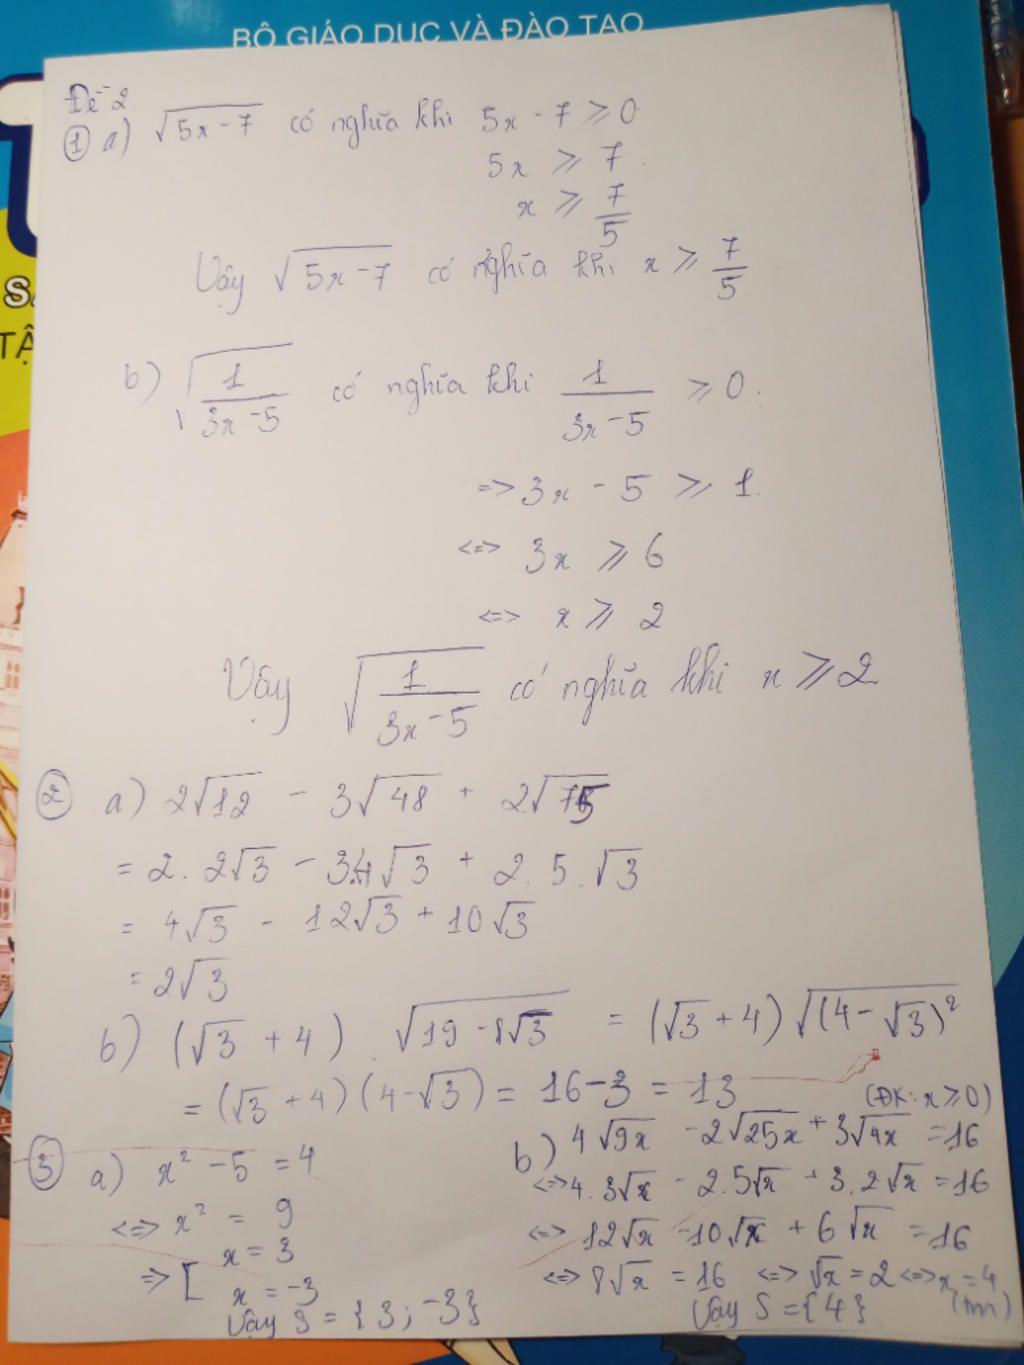 BỘ GIÁO DỤC VÀ ĐÀO TẠO
Đề 2
① a) √(5x - 7) có nghĩa khi 5x - 7 ⩾ 0
5x ⩾ 7
x ⩾ 7/5
Vậy √(5x - 7) có nghĩa khi x ⩾ 7/5
b) √(1/(3x - 5)) có nghĩa khi 1/(3x - 5) ⩾ 0.
=> 3x - 5 ⩾ 1.
<=> 3x ⩾ 6
<=> x ⩾ 2
Vậy √(1/(3x - 5)) có nghĩa khi x ⩾ 2
② a) 2√12 - 3√48 + 2√75
= 2. 2√3 - 3.4√3 + 2. 5. √3
= 4√3 - 12√3 + 10√3
= 2√3
b) (√3 + 4) . √(19 - 8√3) = (√3 + 4) √((4 - √3)²)
= (√3 + 4) (4 - √3) = 16 - 3 = 13
③ a) x² - 5 = 4
<=> x² = 9
=> [ x = 3
x = -3
Vậy S = {3; -3}
(ĐK: x ⩾ 0)
b) 4√9x - 2√25x + 3√4x = 16
<=> 4. 3√x - 2. 5√x + 3. 2√x = 16
<=> 12√x - 10√x + 6√x = 16
<=> 8√x = 16 <=> √x = 2 <=> x = 4
(tm)
Vậy S = {4}